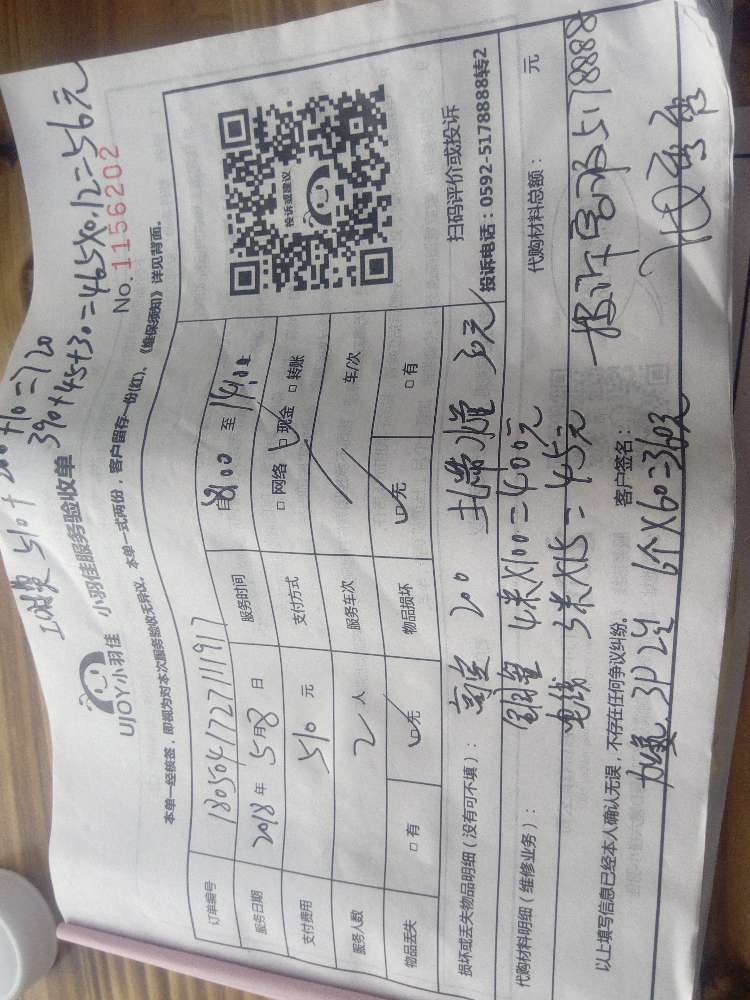 工时费 510+200+10=720
390+45+30=465×0.12=56元
UJOY小羽佳 小羽佳服务验收单 No.1156202
本单一经核签，即视为对本次服务验收无异议，本单一式两份，客户留存一份(红)，《维保须知》详见背面。
订单编号 1805041727111917 服务时间 自8:00 至 14:00
服务日期 2018 年 5 月 8 日 支付方式 □ 网络 □ 现金 □ 转账
支付费用 510 元 服务车次 车/次
服务人数 2 人 物品损坏 □ 无 □ 有
物品丢失 □ 有 □ 无
投诉或建议
扫码评价或投诉
投诉电话：0592-5178888转2
损坏或丢失物品明细（没有可不填）： 高空 200 扎带 30元
代购材料明细（维修业务）： 铜管 4米×100=400元 代购材料总额： 元
电线 3米×15=45元
以上填写信息已经本人确认无误，不存在任何争议纠纷。 客户签名： 投诉电话5178888
加氟 3P 2台 6个×60=360元